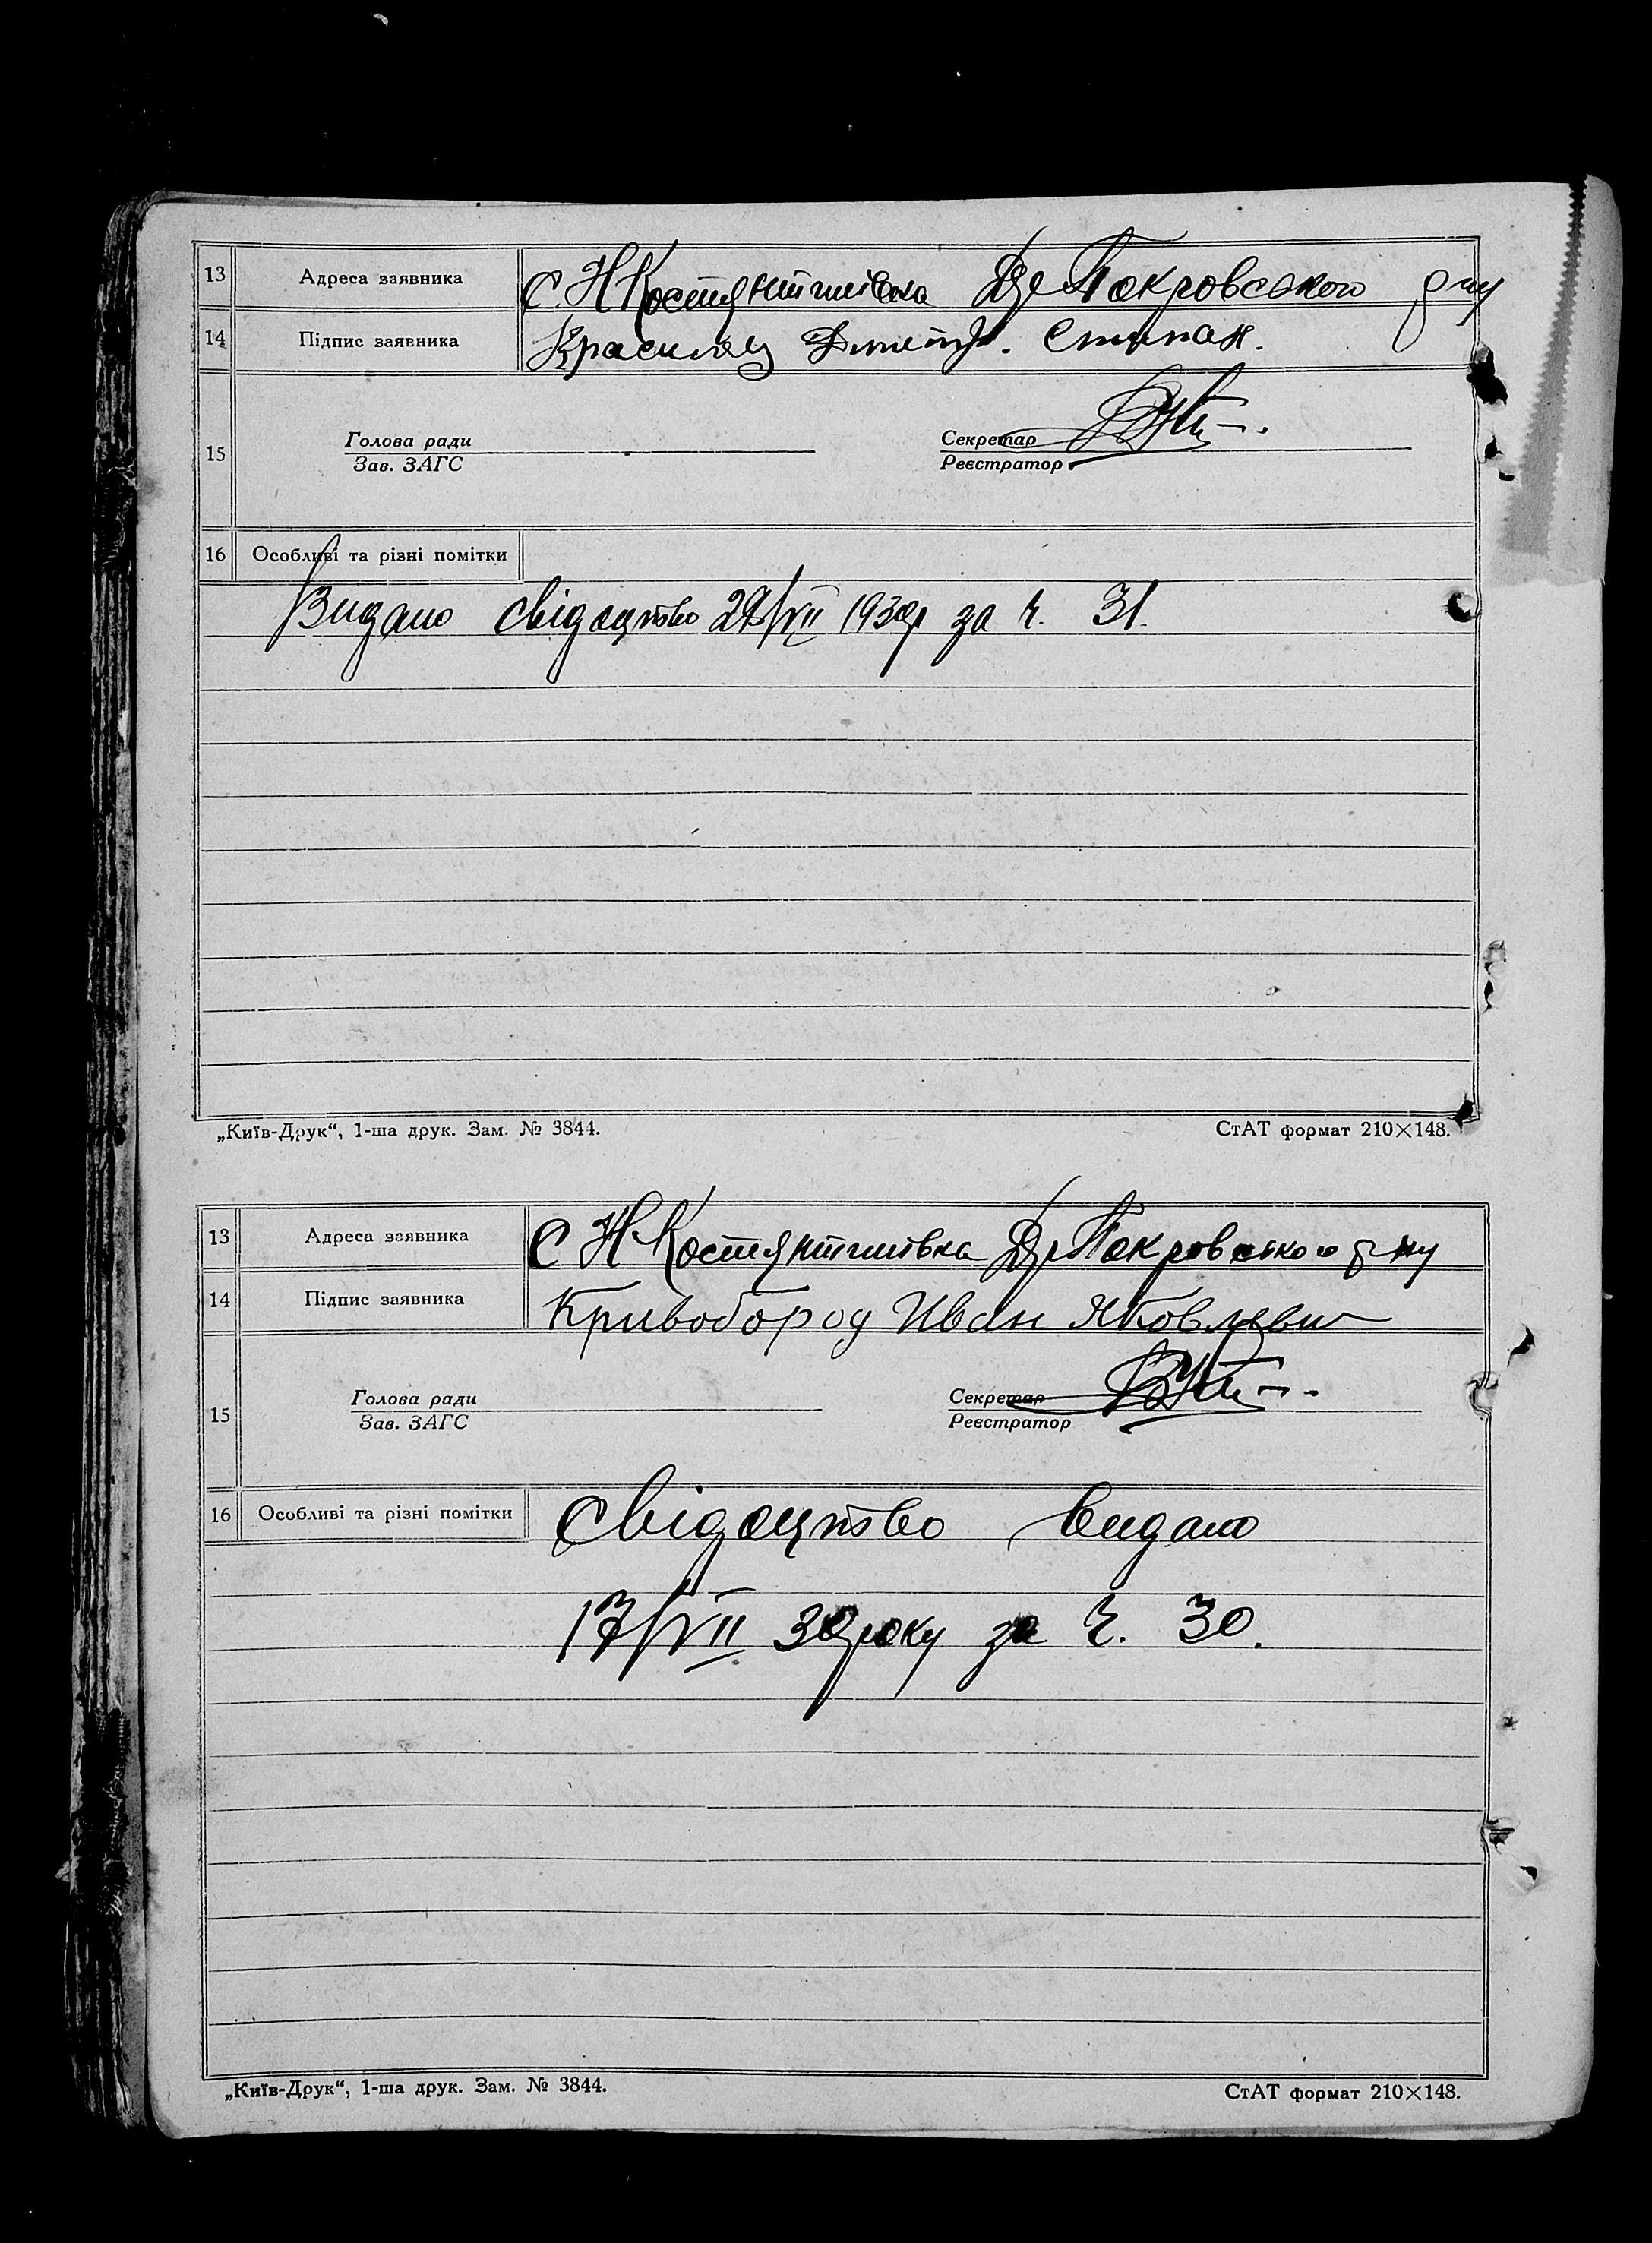 13 Адреса заявника С. Н Костянтинівка Дн Покровського р-ну
14 Підпис заявника Красиляц Дмитр. Степан.
Голова ради Секретар
15 Зав. ЗАГС Реєстратор
16 Особливі та різні помітки
Видано свідоцтво 29/VII 1932р за ч. 31.
„Київ-Друк“, 1-ша друк. Зам. № 3844. СтАТ формат 210×148.
13 Адреса заявника С Н-Костянтинівка Дн Покровського р-ну
14 Підпис заявника Кривобород Иван Яковлевич
Голова ради Секретар
15 Зав. ЗАГС Реєстратор
16 Особливі та різні помітки Свідоцтво видано
17/VII 32 року за ч. 30.
„Київ-Друк“, 1-ша друк. Зам. № 3844. СтАТ формат 210×148.